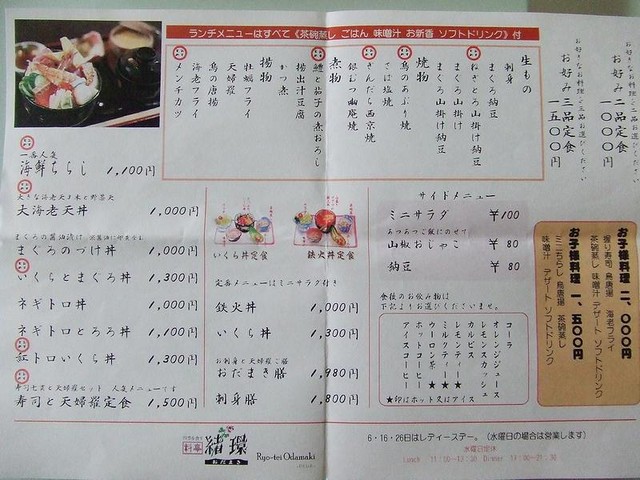 ランチメニューはすべて《茶碗蒸し ごはん 味噌汁 お新香 ソフトドリンク》付
お好きなお料理を二品お選びください
お好み二品定食
一〇〇〇円
お好きなお料理を三品お選びください
お好み三品定食
一五〇〇円
生もの
刺身
まぐろ納豆
ねぎとろ山掛け納豆
まぐろ山掛け
まぐろ山掛け納豆
焼物
鳥のあぶり焼
さば塩焼
さんだら西京焼
銀むつ幽庵焼
煮物
鰻と茄子の煮おろし
揚出汁豆腐
かつ煮
揚物
牡蠣フライ
天婦羅
鳥の唐揚
海老フライ
メンチカツ
一番人気
海鮮ちらし 1,100円
大きな海老天2本と野菜天
大海老天丼 1,000円
まぐろの醤油漬け
まぐろのづけ丼 1,000円
いくらとまぐろ丼 1,300円
ネギトロ丼 1,000円
ネギトロとろろ丼 1,100円
紅トロいくら丼 1,300円
寿司七貫と天婦羅セット 人気メニューです
寿司と天婦羅定食 1,500円
いくら丼定食
鉄火丼定食
定番メニューはミニサラダ付き
鉄火丼 1,000円
いくら丼 1,300円
お刺身と天婦羅ご膳
おだまき膳 1,980円
刺身膳 1,800円
サイドメニュー
ミニサラダ ¥100
あつあつご飯にのせて
山椒おじゃこ ¥80
納豆 ¥80
食後のお飲み物は
下記よりお選びくださいませ。
コーラ
オレンジジュース
レモンスカッシュ
カルピス
レモンティー★
ミルクティー★
ウーロン茶★
ホットコーヒー
アイスコーヒー
★印はホット又はアイス
お子様料理 二、〇〇〇円
握り寿司 鳥唐揚 海老フライ
茶碗蒸し 味噌汁 デザート ソフトドリンク
お子様料理 一、五〇〇円
ミニちらし 鳥唐揚 茶碗蒸し
味噌汁 デザート ソフトドリンク
料亭 緒環
おだまき
Ryo-tei Odamaki
6・16・26日はレディースデー。(水曜日の場合は営業します)
水曜日定休